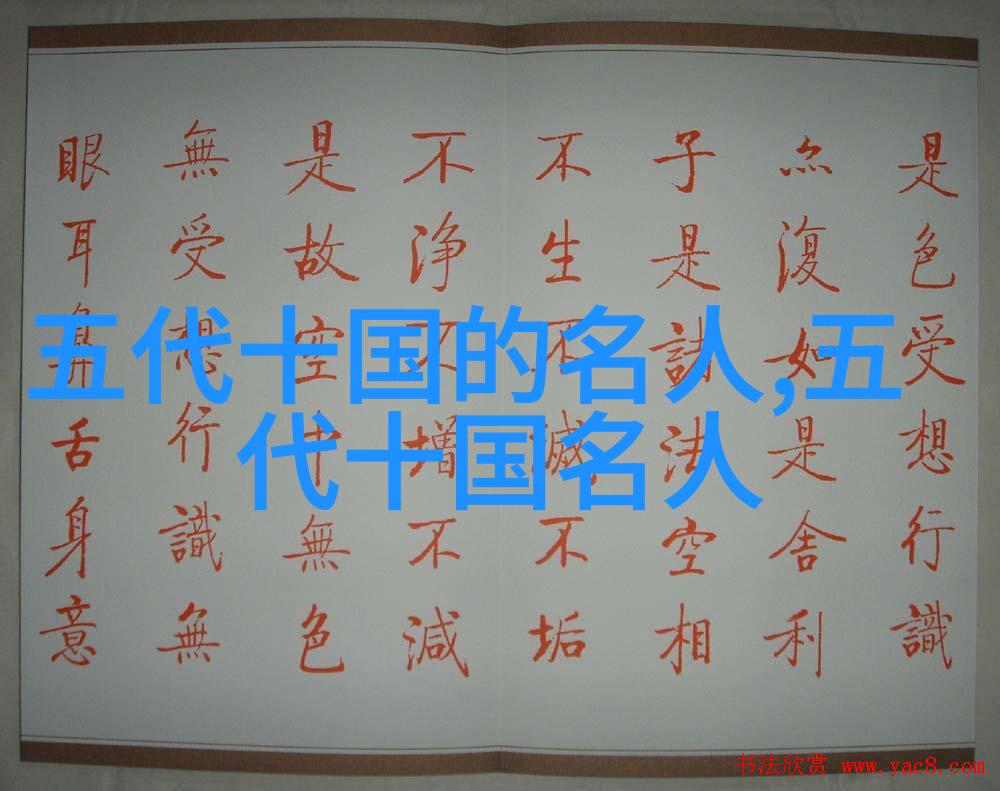 是色受想行識
亦復如是舍利
子是諸法空相
不生不滅不垢
不浄不增不減
是故空中無色
無受想行識無
眼耳鼻舌身意
五代十国的名人,五
代十国名人
书法欣赏 www.yac8.com